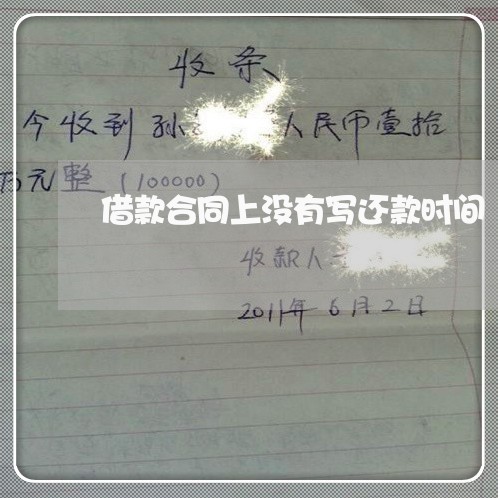 收条
今收到孙 人民币壹拾
万元整(100000)
借款合同上没有写还款时间
收款人
2011年6月2日